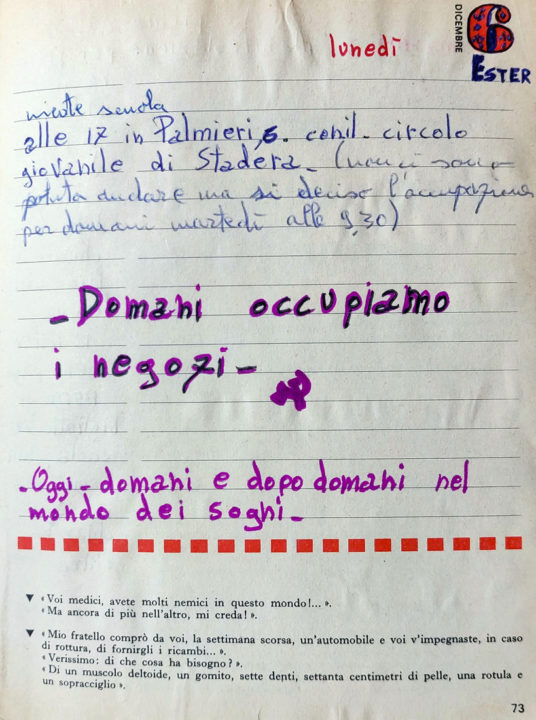 lunedì
DICEMBRE
6
ESTER
niente scuola
alle 17 in Palmieri, 6. con il circolo
giovanile di Stadera - (non ci sono
potuta andare ma si decise l'occupazione
per domani martedì alle 9,30)
- Domani occupiamo
i negozi -
- Oggi - domani e dopo domani nel
mondo dei sogni -
▼ « Voi medici, avete molti nemici in questo mondo!... ».
« Ma ancora di più nell'altro, mi creda! ».
▼ « Mio fratello comprò da voi, la settimana scorsa, un'automobile e voi v'impegnaste, in caso
di rottura, di fornirgli i ricambi... ».
« Verissimo: di che cosa ha bisogno? ».
« Di un muscolo deltoide, un gomito, sette denti, settanta centimetri di pelle, una rotula e
un sopracciglio ».
73